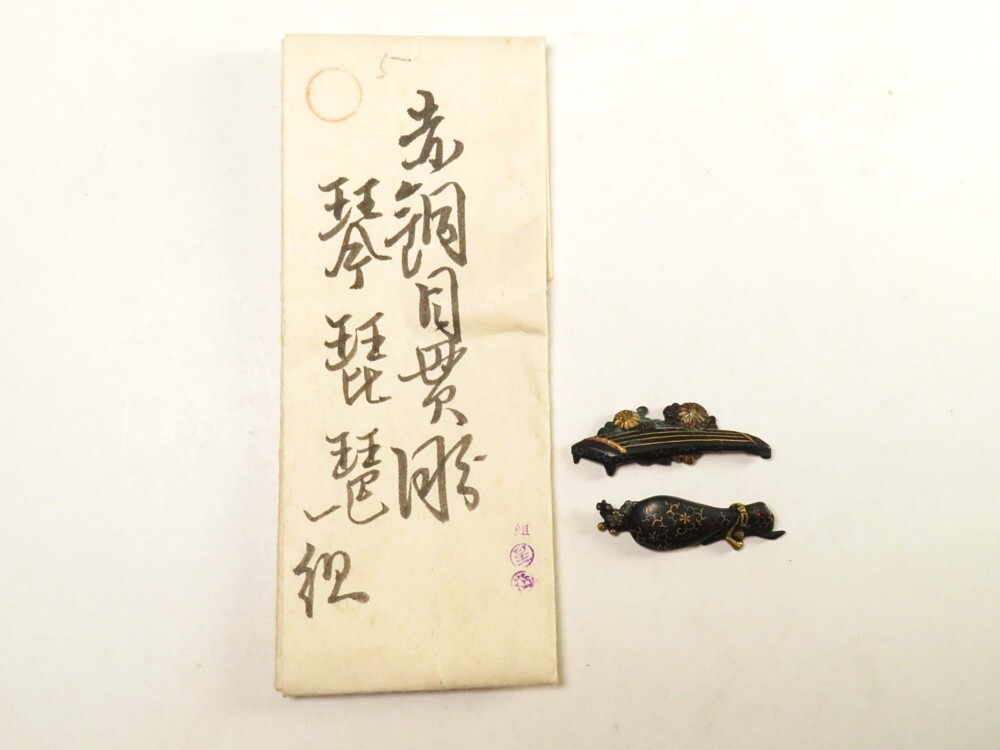 5
赤銅目貫
琴琵琶組
組